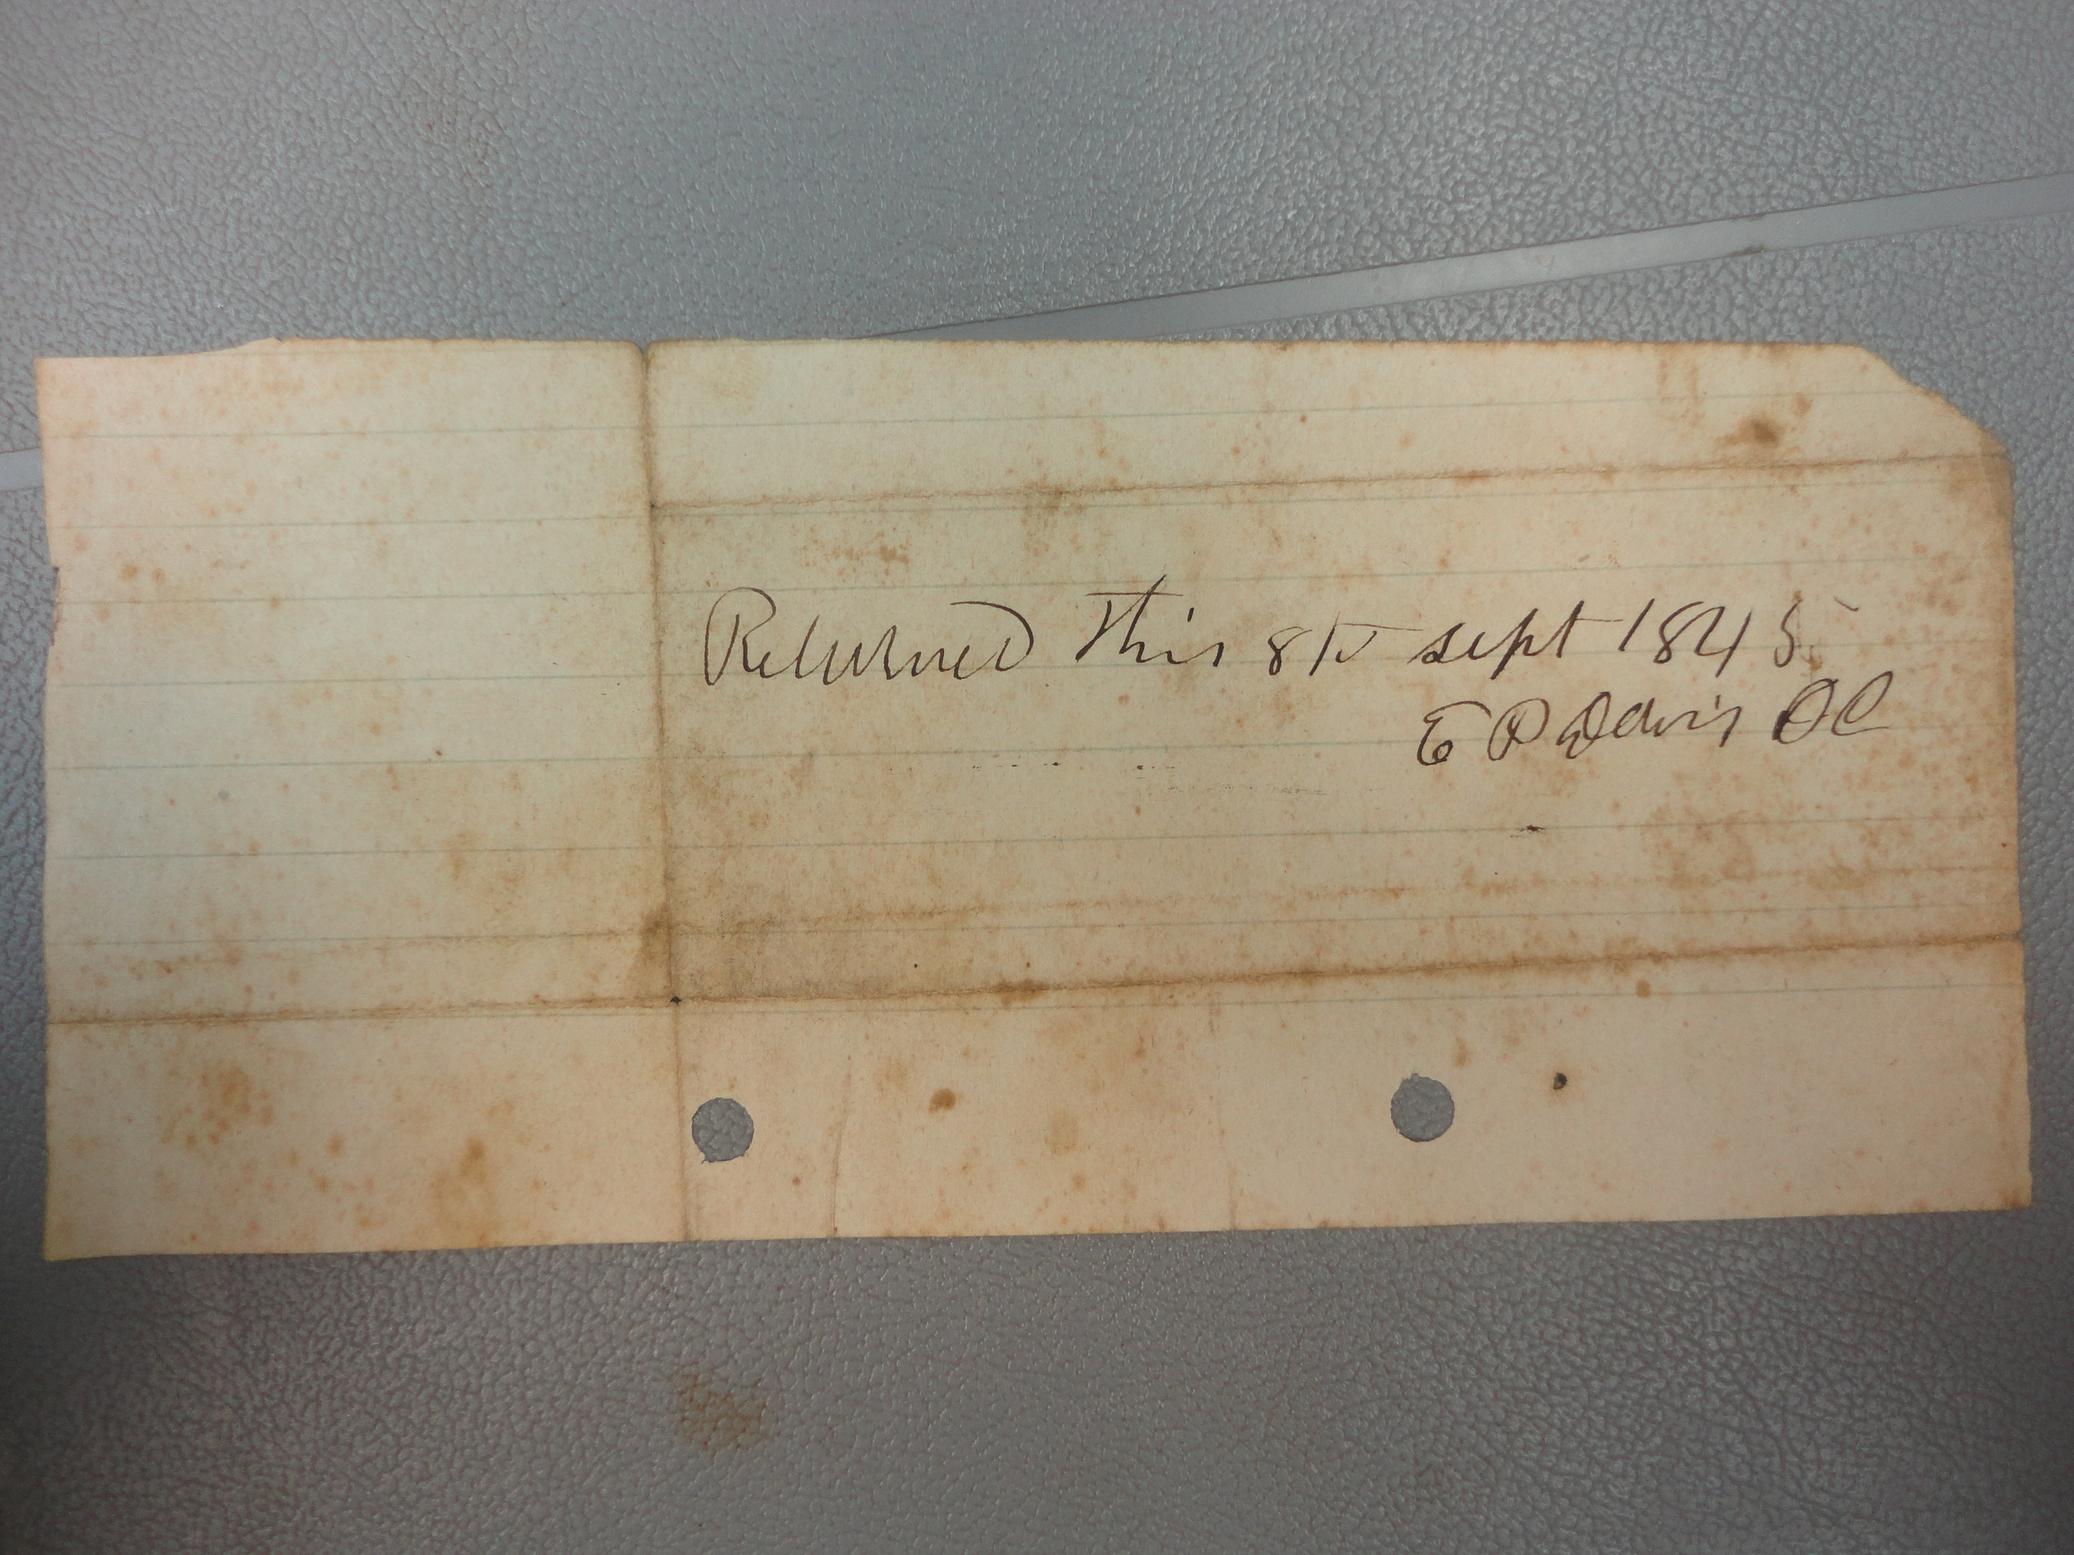 Returned this 8th sept 1845
E P Davis DC